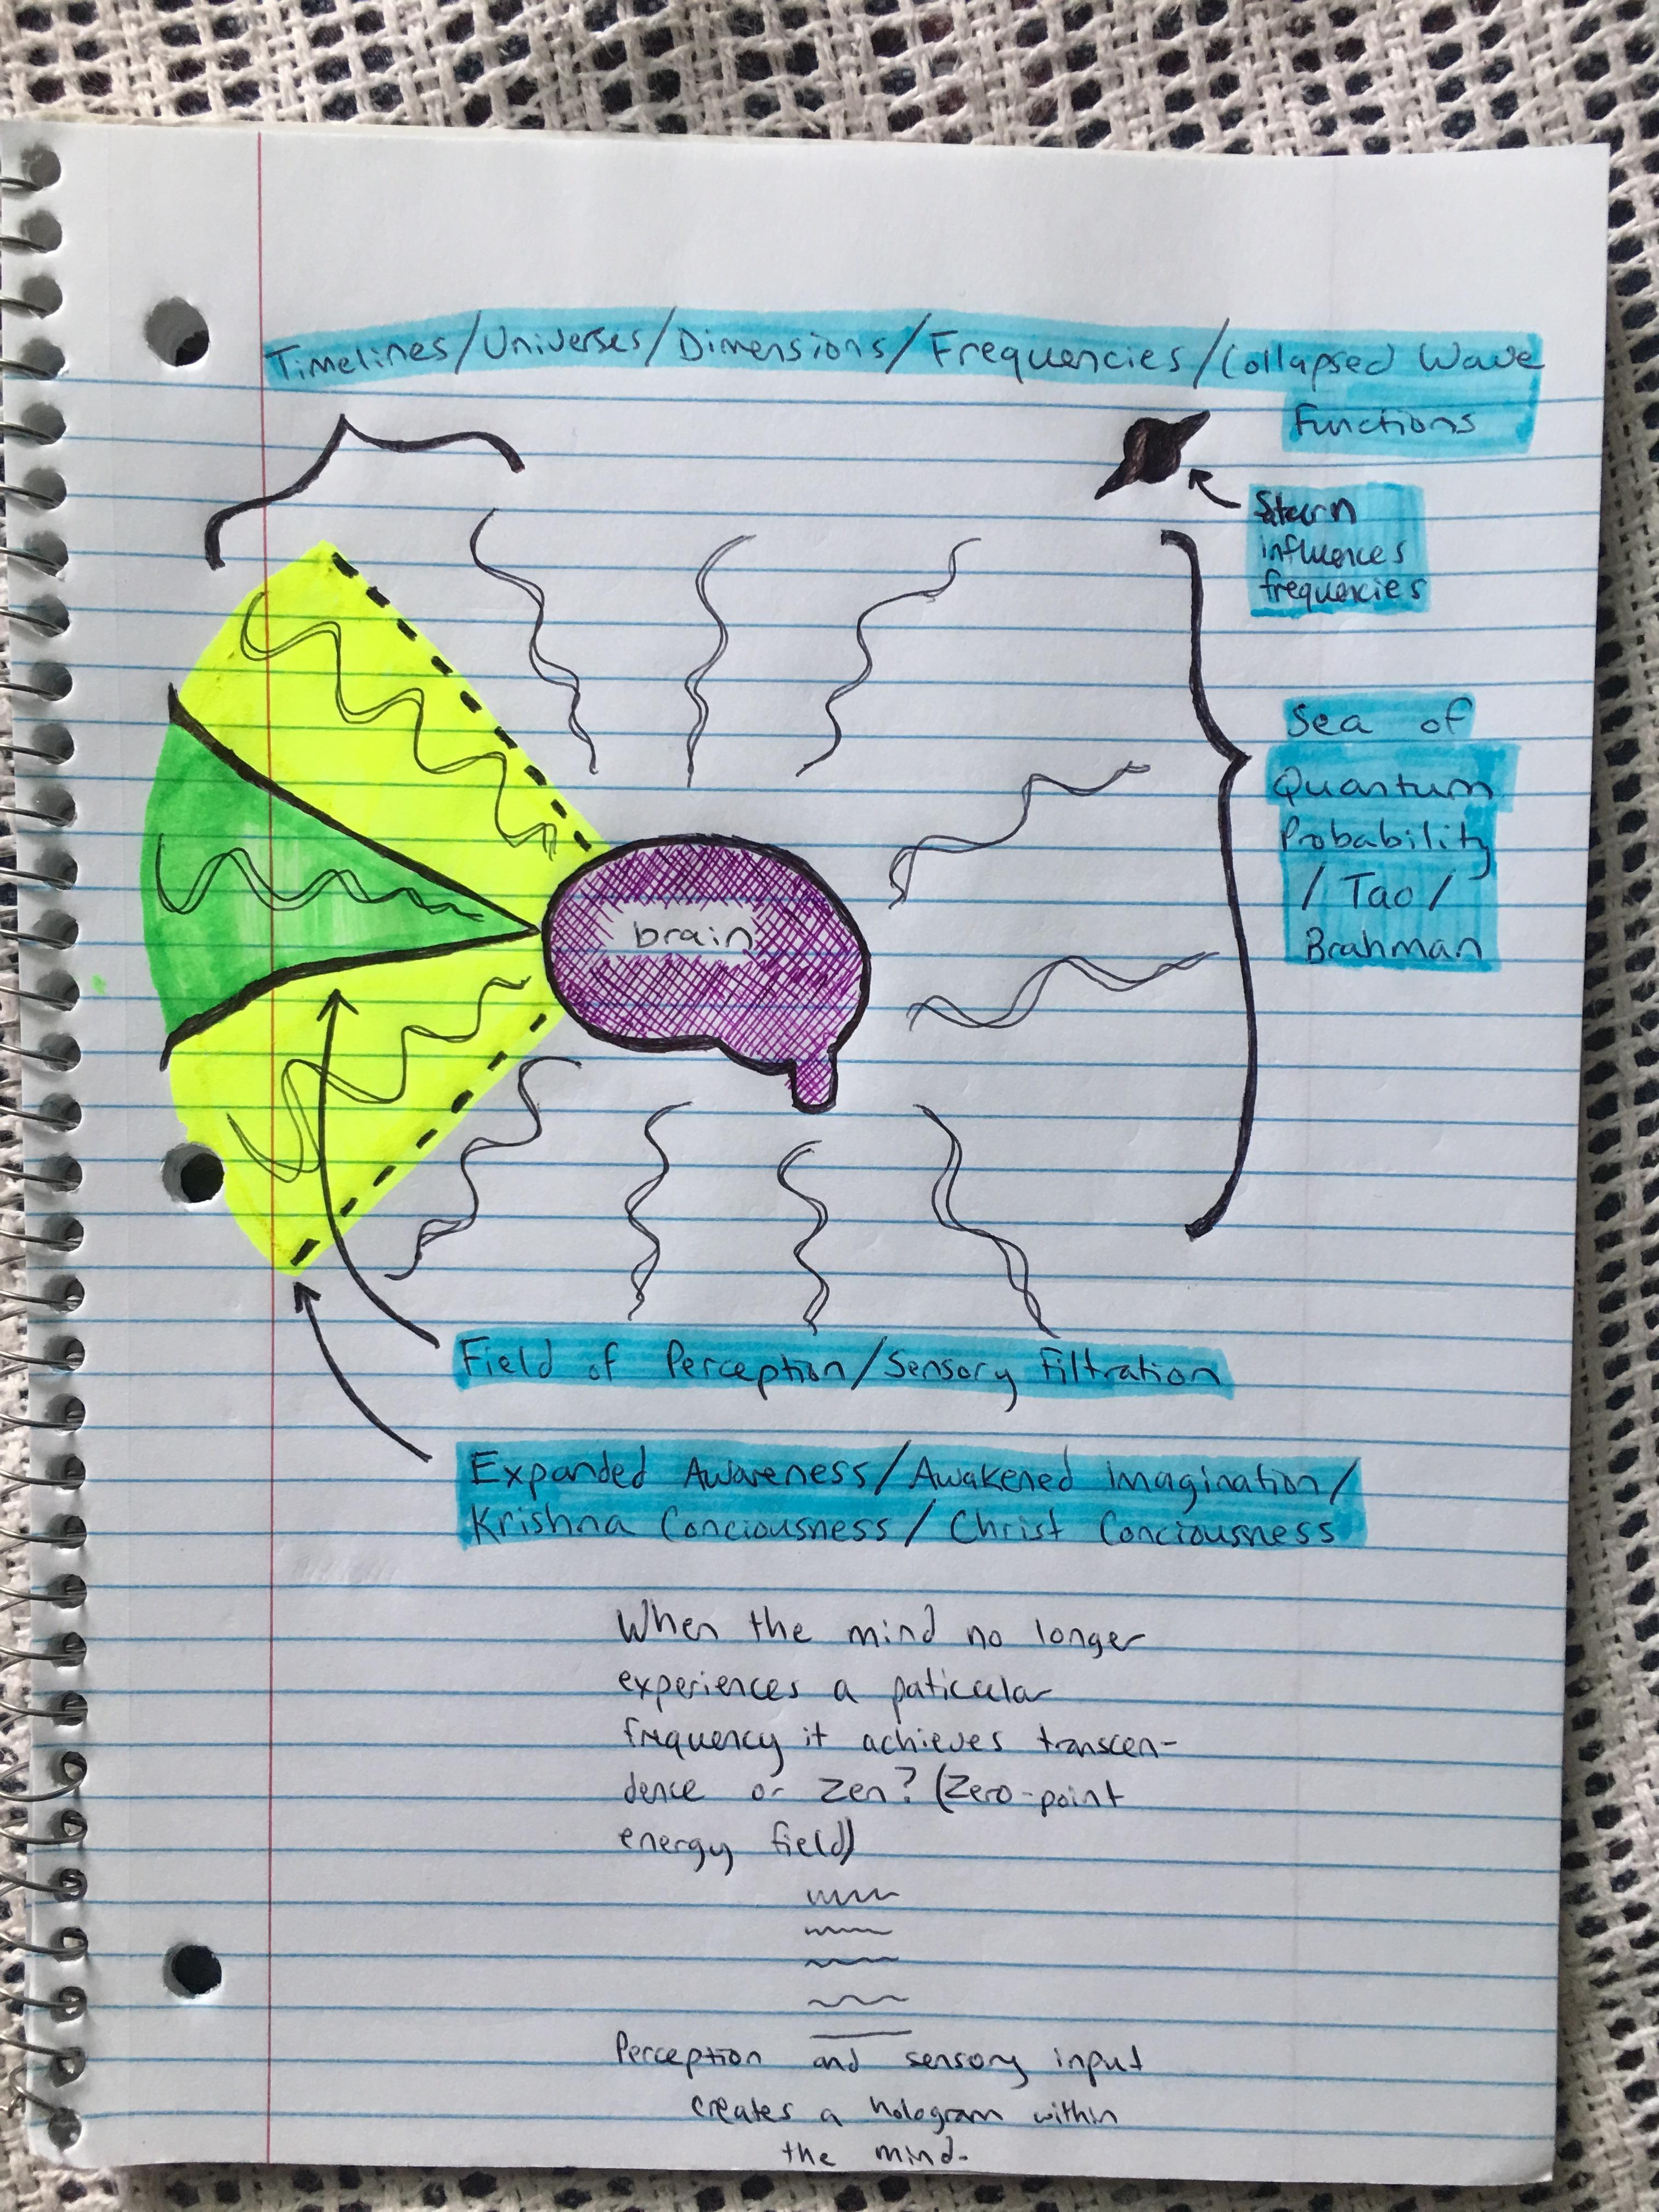 Timelines/Universes/Dimensions/Frequencies/Collapsed Wave
Functions
Saturn
influences
frequencies
Sea of
Quantum
Probability
/ Tao /
Brahman
brain
Field of Perception/Sensory Filtration
Expanded Awareness/Awakened imagination/
Krishna Conciousness/Christ Conciousness
When the mind no longer
experiences a paticular
frequency it achieves transcen-
dence or Zen? (Zero-point
energy field)
Perception and sensory input
creates a hologram within
the mind.